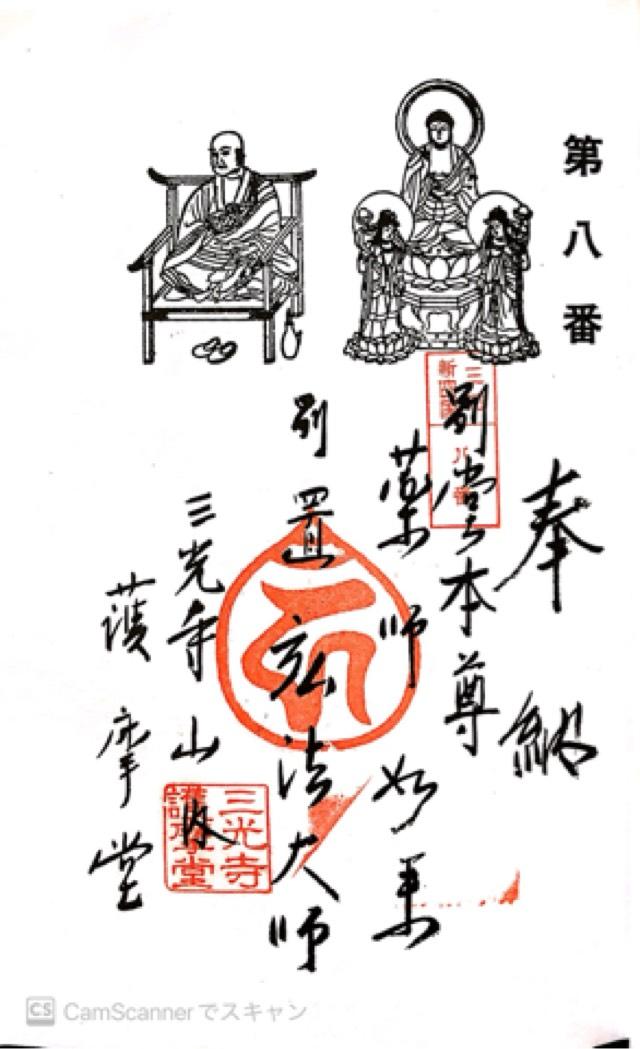 第八番
奉納
別堂本尊
薬師如来
別置弘法大師
三光寺山林
護摩堂
新四国
八番
三光寺
護摩堂
CS CamScannerでスキャン